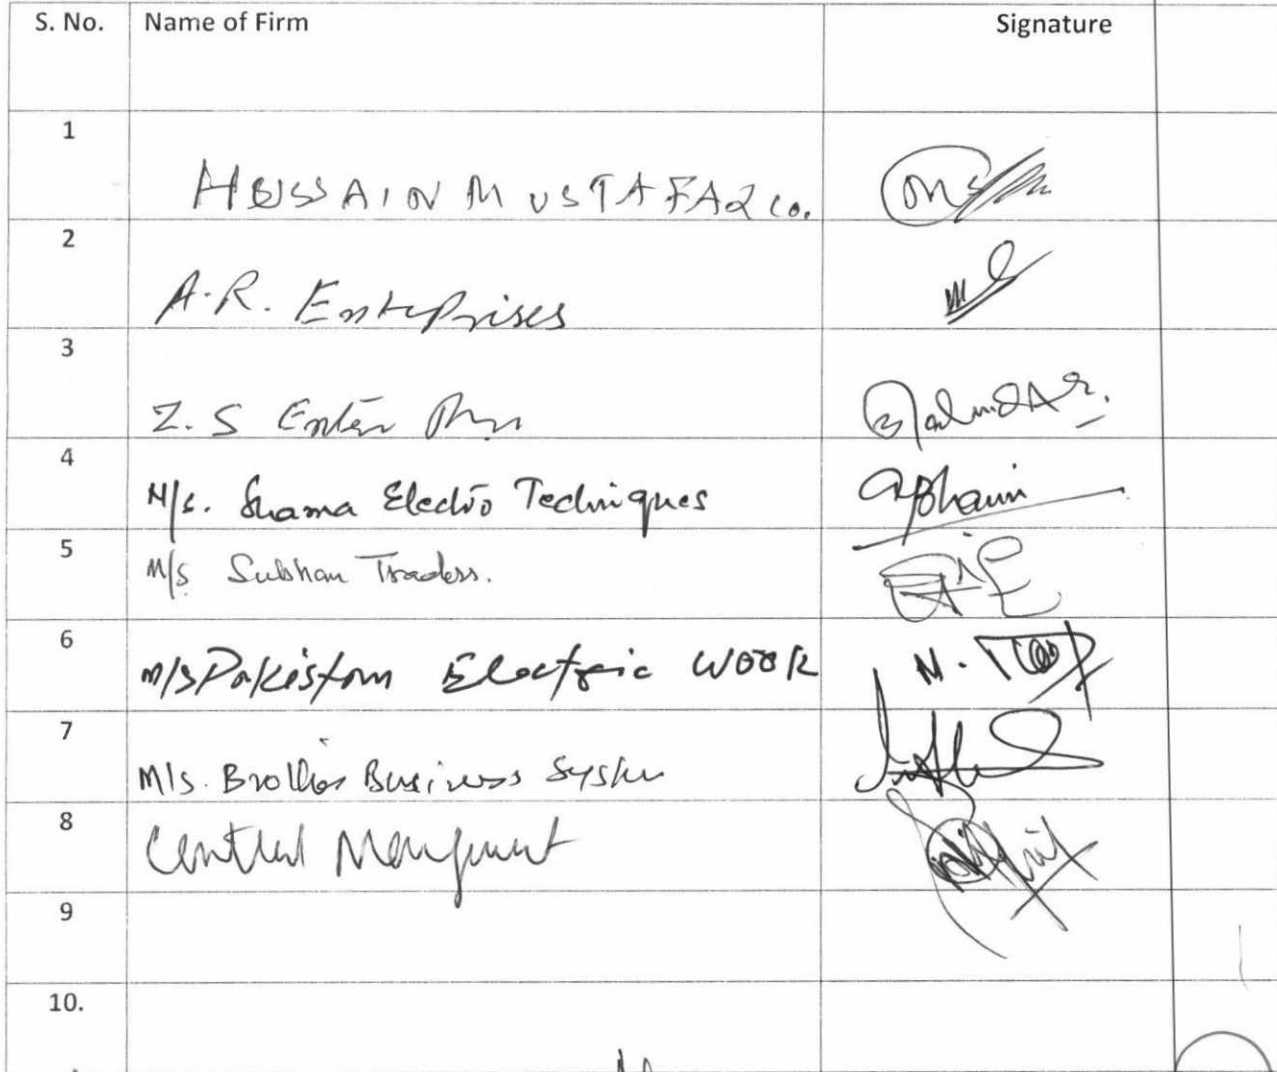 S. No. Name of Firm Signature
1
HUSSAIN MUSTAFA & Co.
2
A.R. Enterprises
3
Z.S Enter
4
M/s. Shama Electro Techniques
5
M/s. Subhan Traders.
6
M/s Pakistan Electric WOORK
7
M/s. Brothers Business System
8
Central
9
10.